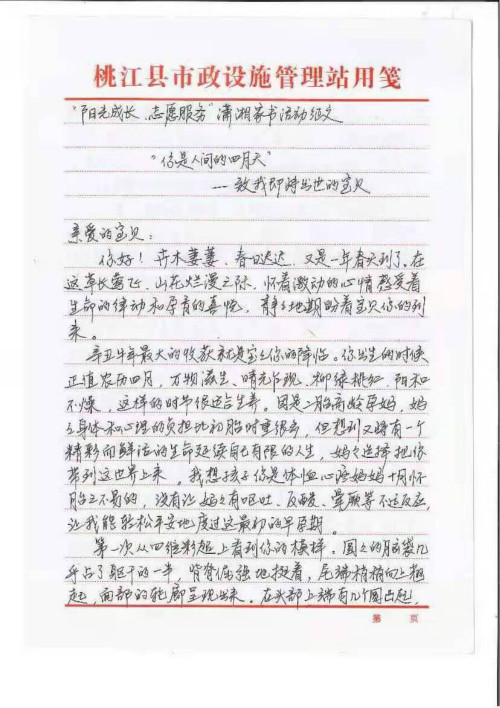 桃江县市政设施管理站用笺
“阳光成长、志愿服务”潇湘家书活动征文
“你是人间的四月天”
——致我即将出世的宝贝
亲爱的宝贝：
你好！卉木萋萋，春日迟迟，又是一年春天到了，在
这草长莺飞、山花烂漫之际，怀着激动的心情感受着
生命的律动和孕育的喜悦，静静地期盼着宝贝你的到
来。
辛丑牛年最大的收获就是宝宝你的降临。你出生的时候
正值农历四月，万物滋生、晴光乍现、柳绿桃红、阳和
不燥，这样的时节很适合生养。因是二胎高龄孕妈，妈
妈身体和心理的负担比初胎时重很多，但想到又将有一个
精彩而鲜活的生命延续自己有限的人生，妈妈选择把你
带到这世界上来，我想孩子你是体恤心疼妈妈十月怀
胎之不易的，没有让妈妈有呕吐、反酸、晕厥等不适反应，
让我能轻松平安地度过这最初的早孕期。
第一次从四维彩超上看到你的模样，圆圆的脑袋几
乎占了躯干的一半，脊背倔强地挺着，尾端稍稍向上翘
起，面部的轮廓呈现出来，在头部上端有几个圆凸起，
第 页